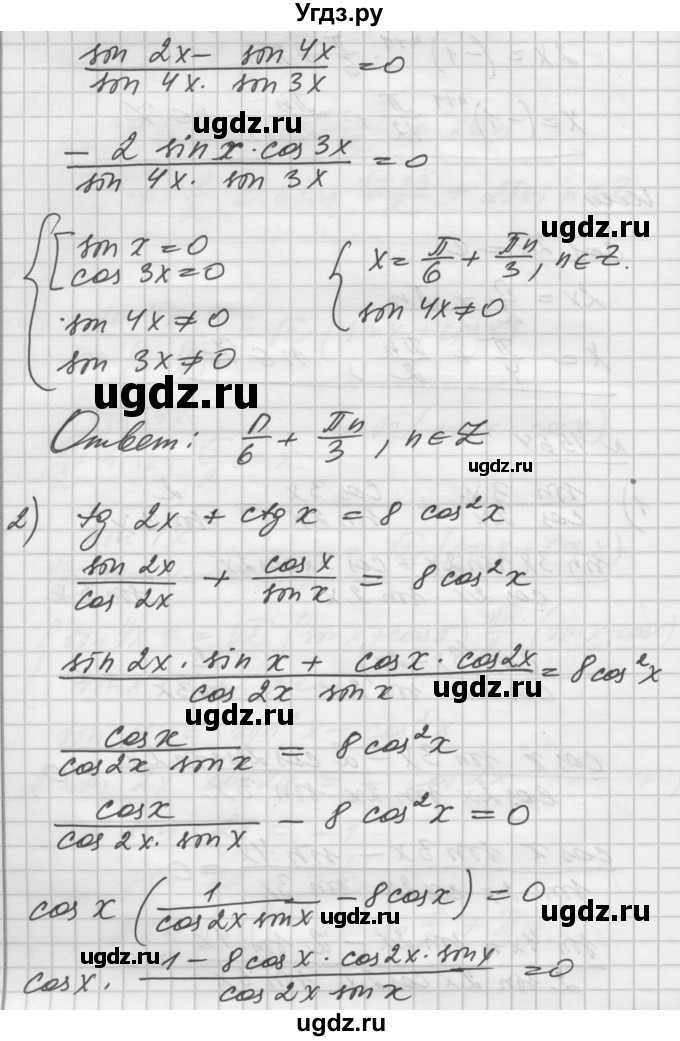 Угдз.ру
sin 2x − sin 4x / sin 4x · sin 3x = 0
− 2 sin x · cos 3x / sin 4x · sin 3x = 0
ugdz.ru
ugdz.ru
{ [ sin x = 0
cos 3x = 0
sin 4x ≠ 0
sin 3x ≠ 0
{ x = π/6 + πn/3, n ∈ Z.
sin 4x ≠ 0
ugdz.ru
ugdz.ru
Ответ: π/6 + πn/3, n ∈ Z
ugdz.ru
2) tg 2x + ctg x = 8 cos²x
ugdz.ru
sin 2x / cos 2x + cos x / sin x = 8 cos²x
ugdz.ru
sin 2x · sin x + cos x · cos 2x / cos 2x sin x = 8 cos²x
ugdz.ru
ugdz.ru
cos x / cos 2x sin x = 8 cos²x
cos x / cos 2x · sin x − 8 cos²x = 0
ugdz.ru
ugdz.ru
cos x ( 1 / cos 2x sin x − 8 cos x ) = 0
ugdz.ru
ugdz.ru
cos x · 1 − 8 cos x · cos 2x · sin x / cos 2x sin x = 0
ugdz.ru
ugdz.ru